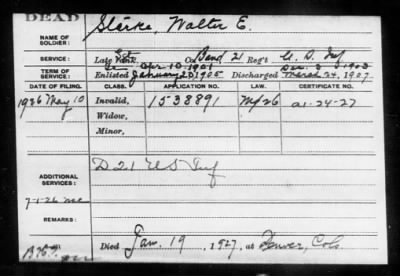 DEAD
NAME OF SOLDIER: Starke, Walter E.
SERVICE: Late Rank, Co. Band 21 Reg't U. S. Inf
TERM OF SERVICE: Apr 10 1901 Dec. 3 1903
Enlisted January 2, 1905 Discharged March 24, 1907.
DATE OF FILING. CLASS. APPLICATION NO. LAW. CERTIFICATE NO.
1926 May 10 Invalid, 1538891 a1-24-27
Widow,
Minor,
ADDITIONAL SERVICES: D 21 U S Inf
7-1-26
REMARKS:
Died Jan. 19, 1927, at Denver, Colo.